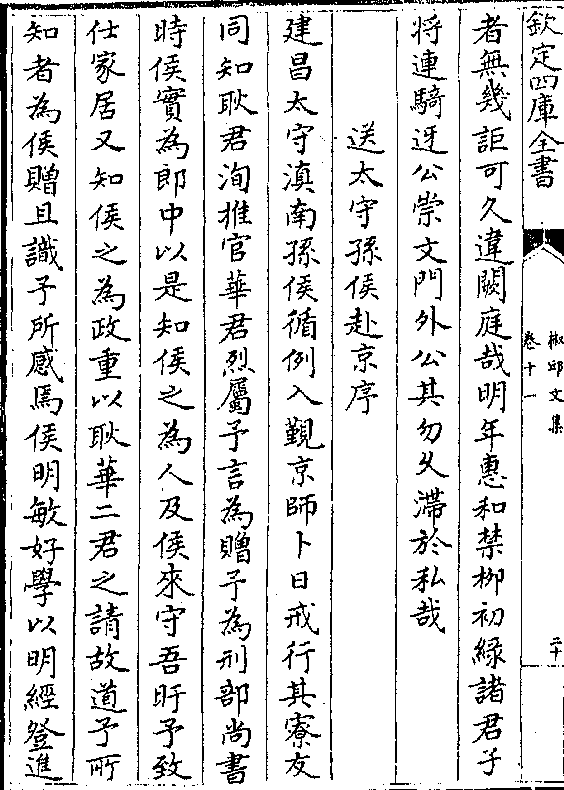 欽定四庫全書
椒邱文集
卷十一
二十
者無幾詎可久違闕庭哉明年惠和禁柳初緑諸君子
将連騎迓公崇文門外公其勿久滯於私哉
送太守孫侯赴京序
建昌太守滇南孫侯循例入覲京師卜日戒行其寮友
同知耿君洵推官華君烈屬予言為贈予為刑部尚書
時侯實為郎中以是知侯之為人及侯來守吾旴予致
仕家居又知侯之為政重以耿華二君之請故道予所
知者為侯贈且識予所感焉侯明敏好學以明經登進